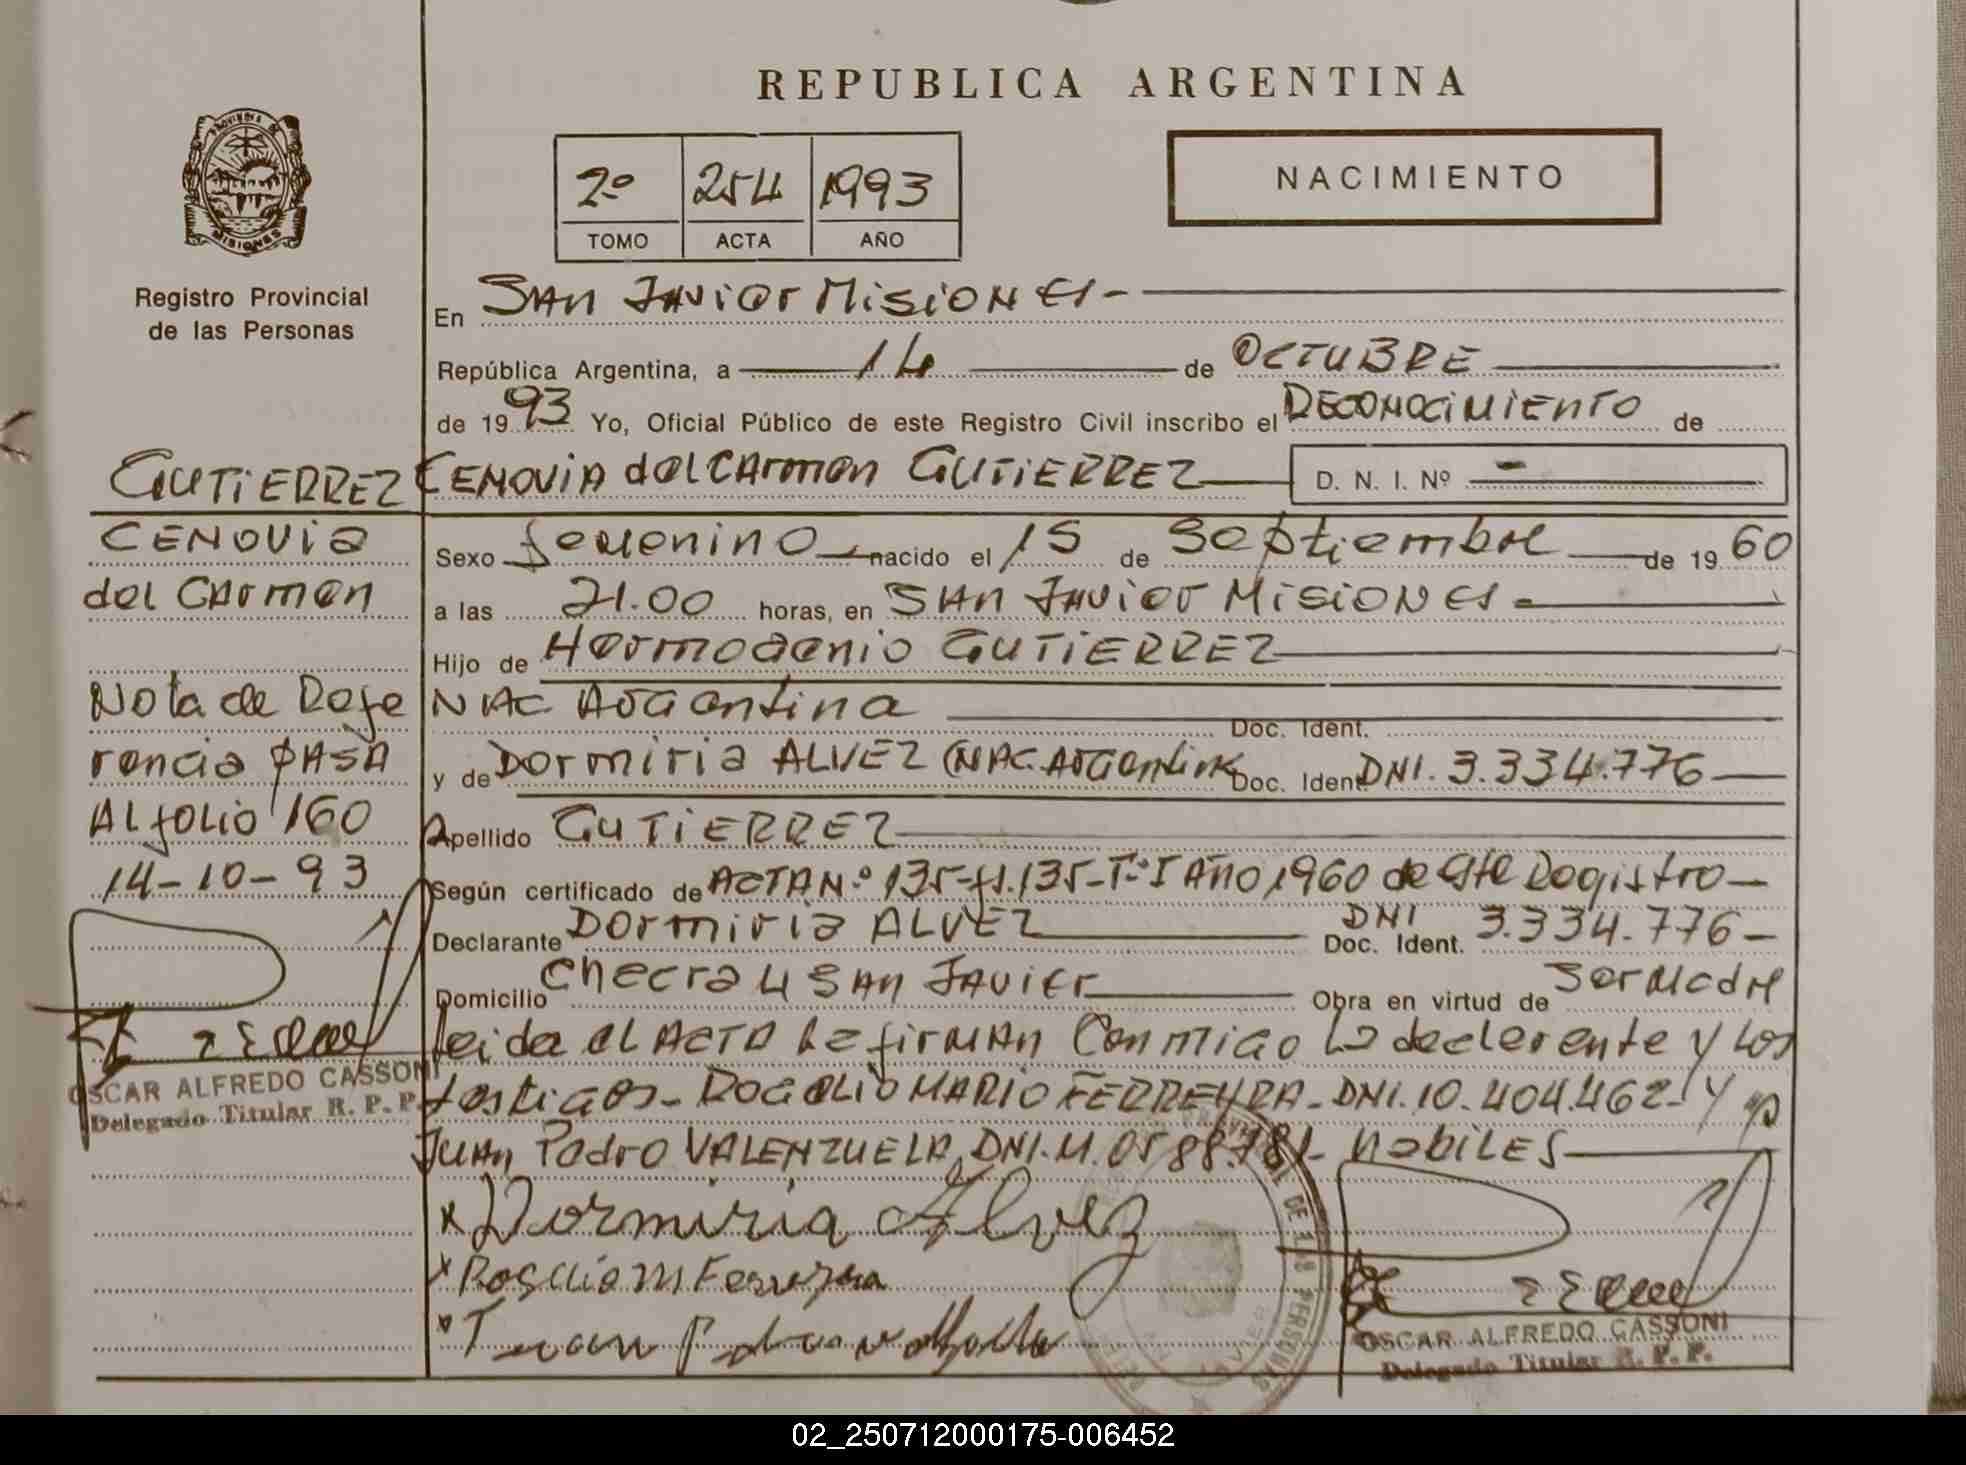 REPUBLICA ARGENTINA
PROVINCIA DE
MISIONES
Registro Provincial
de las Personas
2º 254 1993
TOMO ACTA AÑO
NACIMIENTO
En SAN JAVIER MISIONES-
República Argentina, a 14 de OCTUBRE
de 1993 Yo, Oficial Público de este Registro Civil inscribo el RECONOCIMIENTO de
CENOVIA del CARMEN GUTIERREZ D. N. I. Nº -
Sexo femenino, nacido el 15 de Septiembre de 1960
a las 21.00 horas, en SAN JAVIER MISIONES-
Hijo de Hermogenio GUTIERREZ
NAC Argentina Doc. Ident.
y de Dormiria ALVEZ (NAC. Argentina Doc. Ident DNI. 3.334.776
Apellido GUTIERREZ
Según certificado de ACTA N.º 135-fl.135-Tº I AÑO 1960 de este Registro-
Declarante Dormiria ALVEZ DNI Doc. Ident. 3.334.776-
Domicilio Checra 4 SAN JAVIER Obra en virtud de Ser Madre
leida el ACTA la firman Conmigo la declarente y los
testigos- ROGELIO MARIO FERREYRA- DNI. 10.404.462- y
JUAN Pedro VALENZUELA, DNI.M. 0588.781- habiles
x Dormiria Alvez
x Rogelio M Ferreyra
x Juan
OSCAR ALFREDO CASSONI
Delegado Titular R. P. P.
GUTIERREZ
CENOVIA
del CARMEN
Nota de Refe
rencia PASA
AL folio 160
14-10-93
OSCAR ALFREDO CASSONI
Delegado Titular R. P. P.
02_250712000175-006452